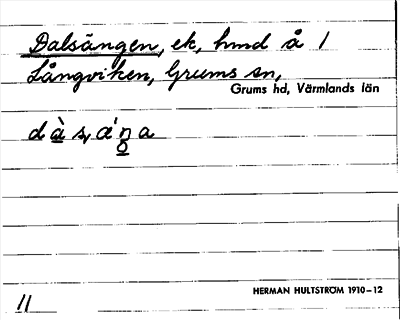 Dalsängen, ek, hmd å 1
Långviken, Grums sn,
Grums hd, Värmlands län
HERMAN HULTSTRÖM 1910–12
11